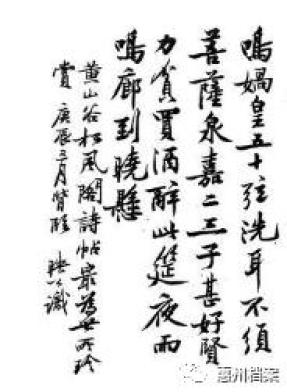 鳴媧皇五十弦洗耳不須
菩薩泉嘉二三子甚好賢
力貧買酒醉此筵夜雨
鳴廊到曉懸
黃山谷松風閣詩帖最為世所珍
賞 庚辰三月
識
惠州档案